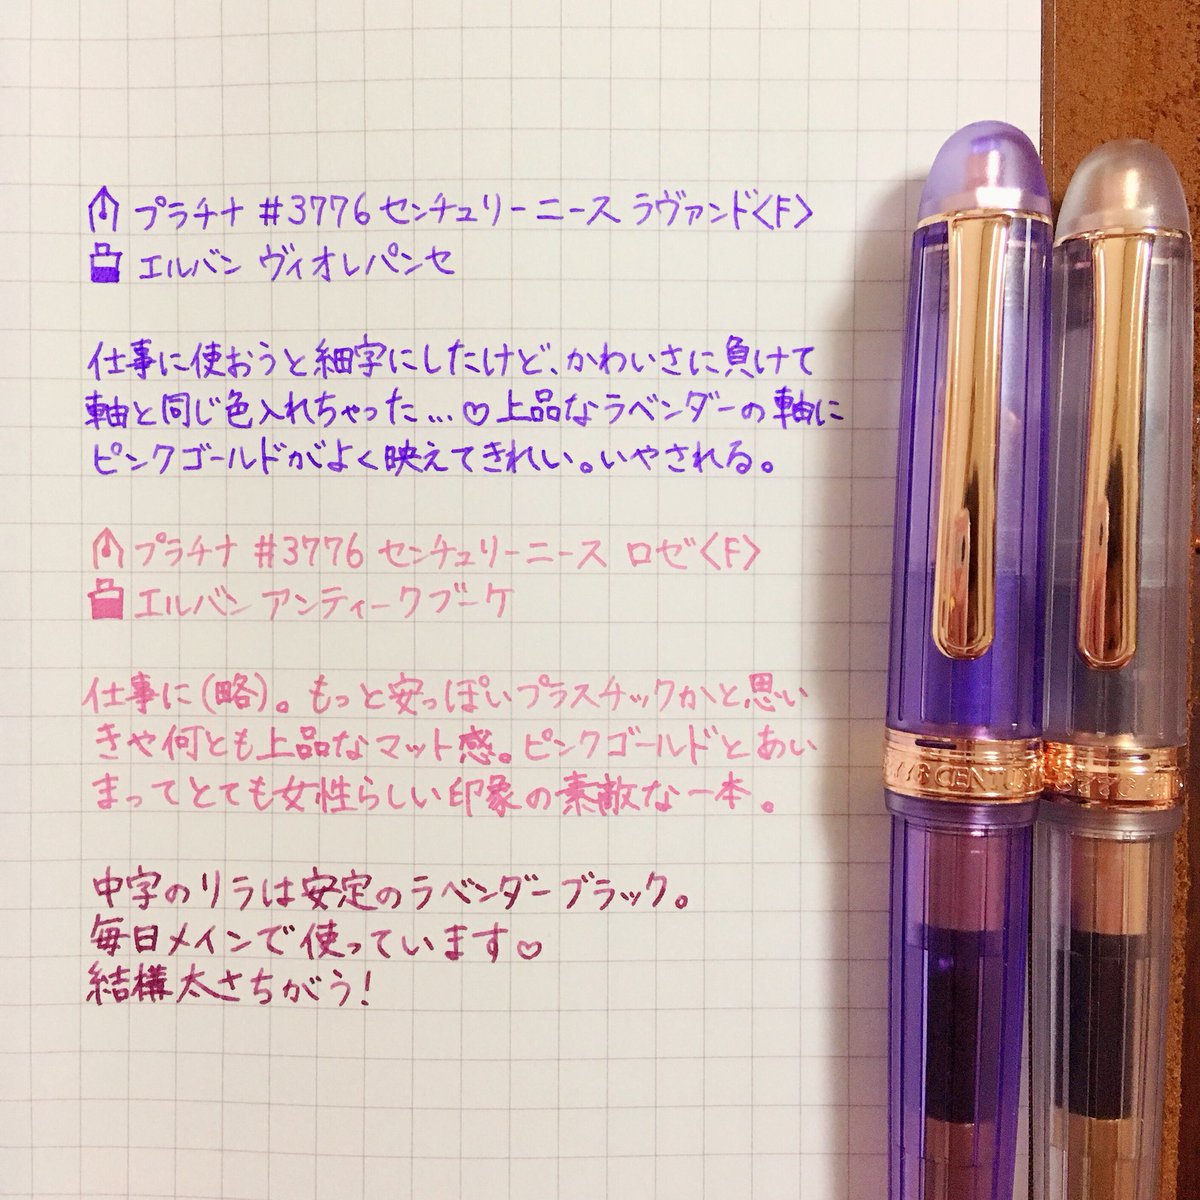 プラチナ #3776 センチュリー ニース ラヴァンド〈F〉
エルバン ヴィオレパンセ
仕事に使おうと細字にしたけど、かわいさに負けて
軸と同じ色入れちゃった…♡上品なラベンダーの軸に
ピンクゴールドがよく映えてきれい。いやされる。
プラチナ #3776 センチュリー ニース ロゼ〈F〉
エルバン アンティークブーケ
仕事に(略)。もっと安っぽいプラスチックかと思い
きや何とも上品なマット感。ピンクゴールドとあい
まってとても女性らしい印象の素敵な一本。
中字のリラは安定のラベンダーブラック。
毎日メインで使っています♡
結構太さちがう!
CENTU